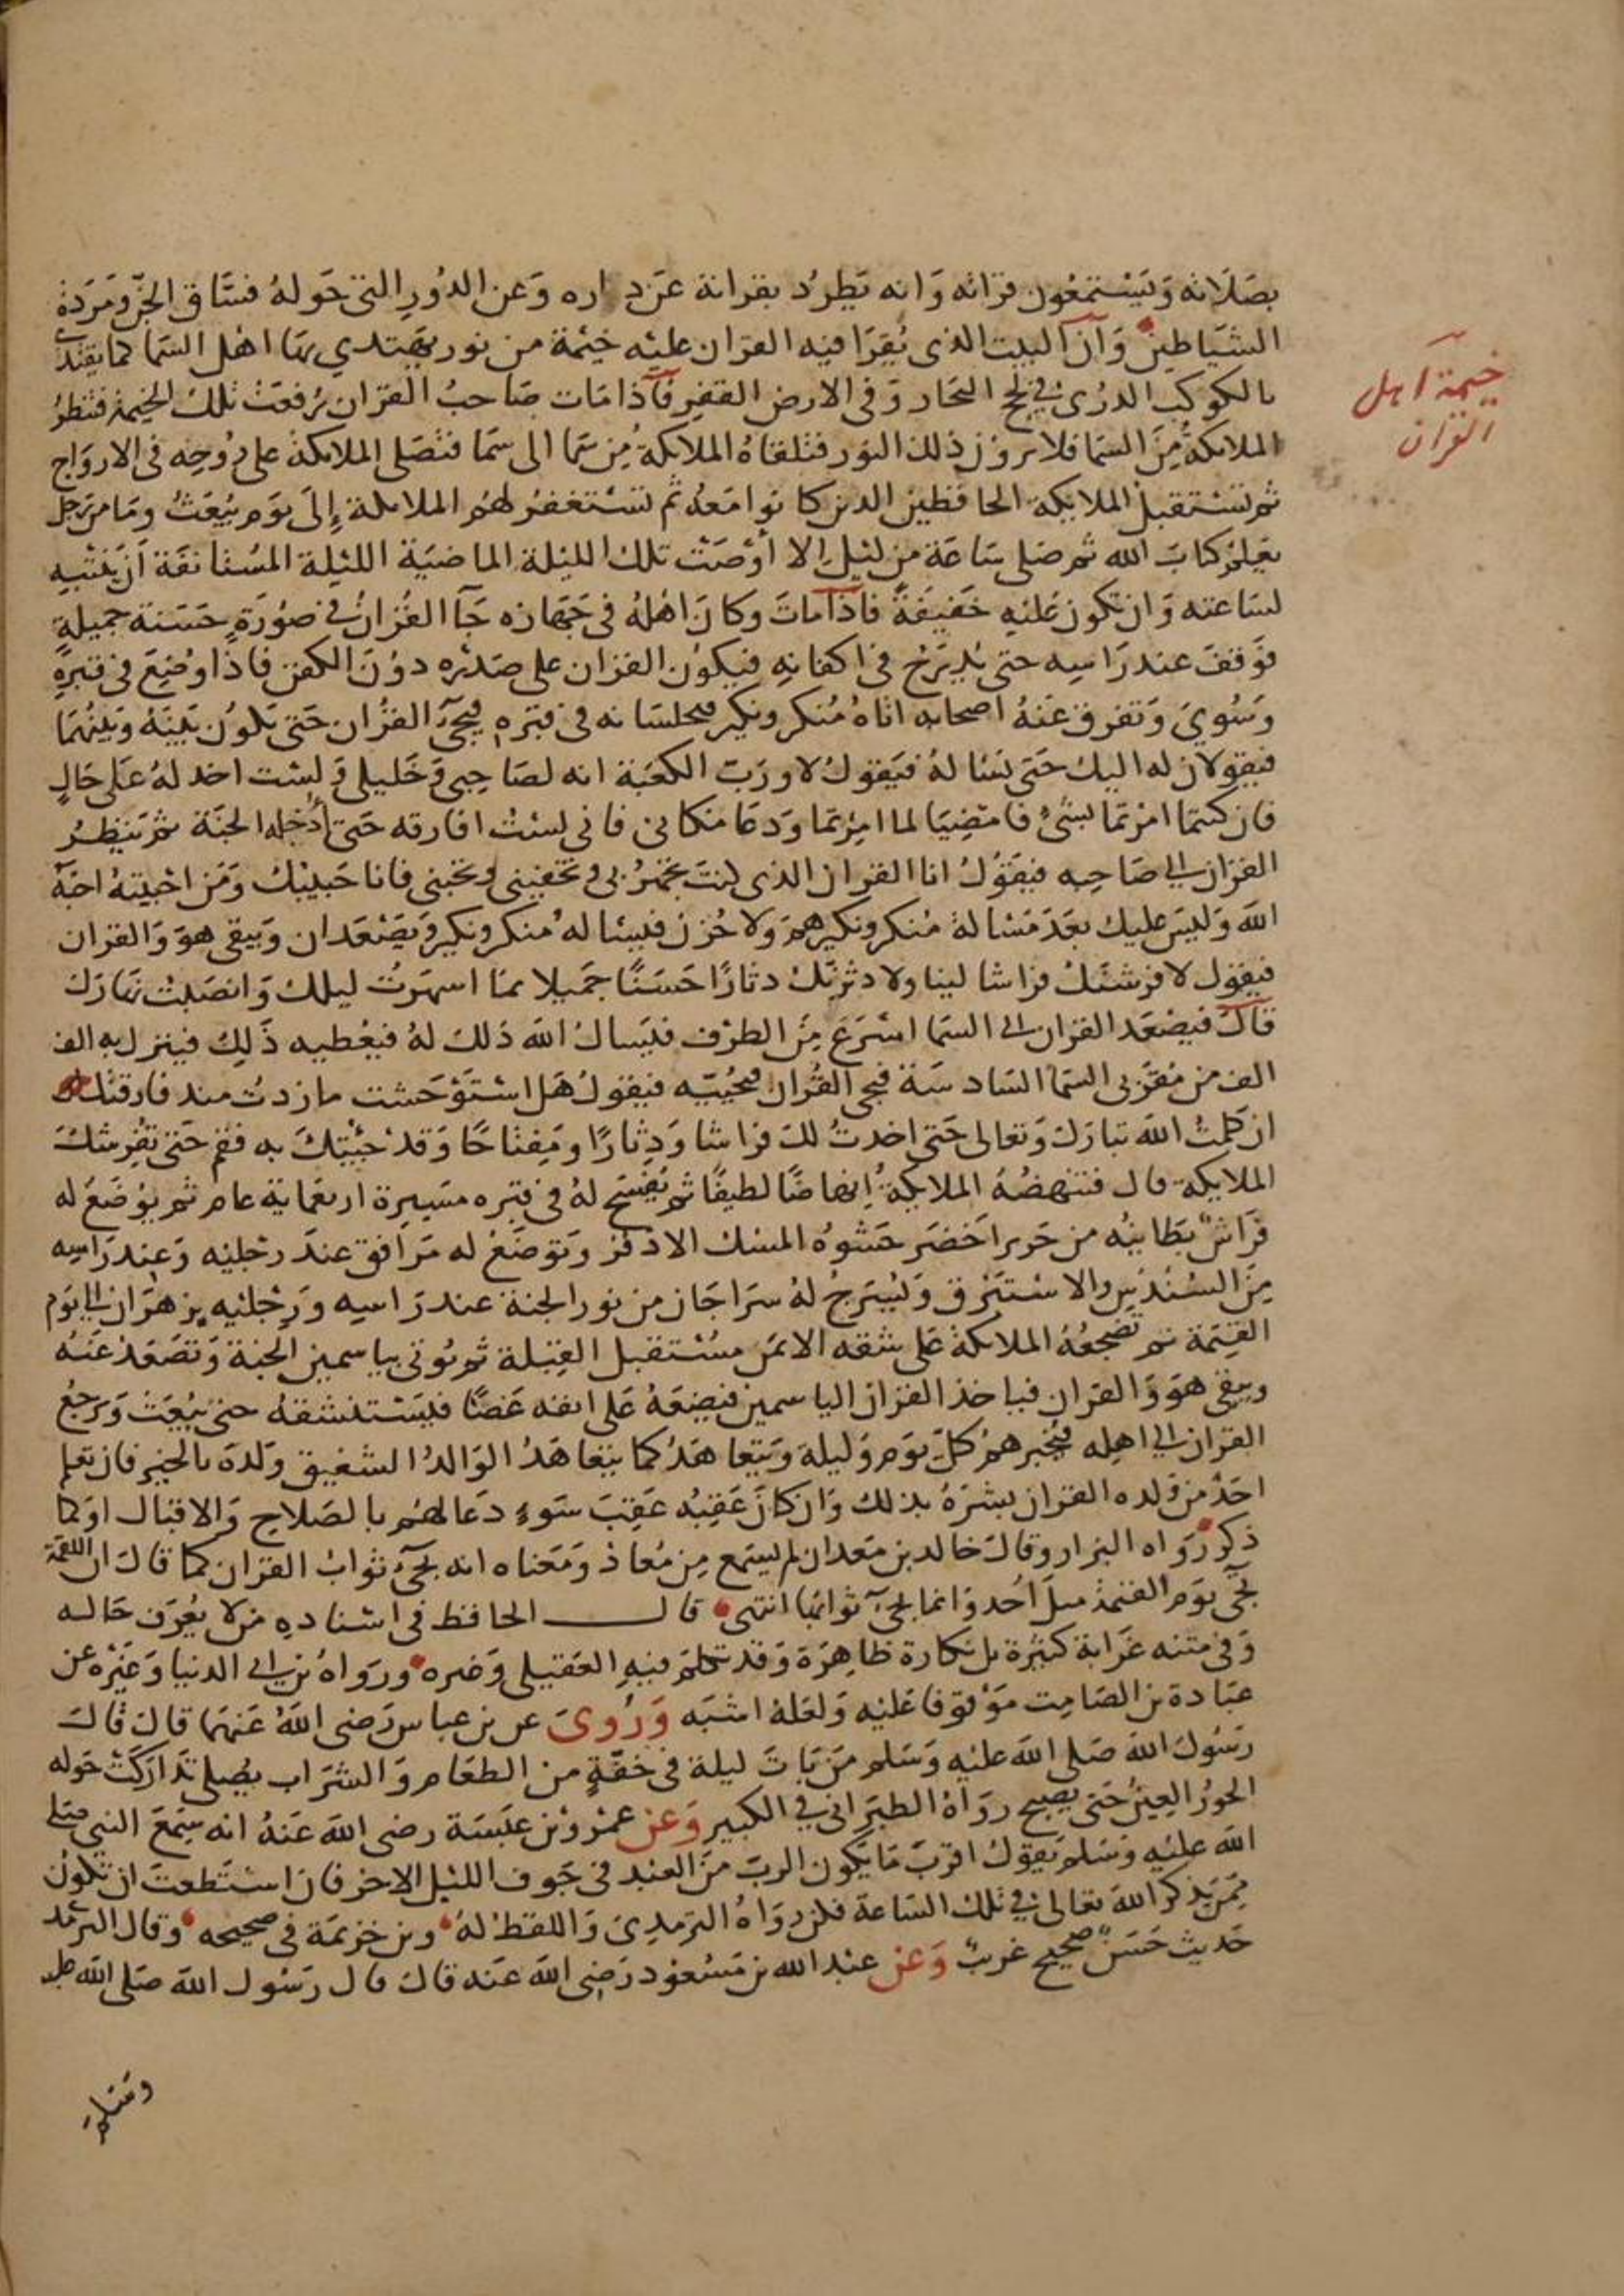 بصَلَاته وَيَسْتمعُون قراته وَانه يَطردُ بقراته عَن داره وَعن الدُورِ التي حَوله فسَّاق الجنّ ومَرَدة
الشيَاطين وَان البيت الذى يُقرَا فيه القران عليْه خيْمة من نور يهْتدي بهَا اهل السَما كما يقتدى
بالكوكب الدرى في لج البحار وَفى الارض القفرِ فاذا مَات صَاحبُ القران رُفعَت تلك الخيمة فتنظرُ
الملايكةُ مِنَ السَما فلا يرون ذلك النور فتلقاهُ الملايكة مِن سَما الى سَما فتصَلى الملايكة على رُوحِه فى الاروَاح
ثم تسْتقبل الملايكة الحافظين الذين كانوا معَهُ ثم تسْتغفرُ لهُم الملايكة إِلَى يَوم يُبْعَث ومَا من رَجل
تعَلم كتابَ الله ثم صَلى سَاعَة من ليْلٍ الا أوْصَتْ تلكَ الليْلة الماضيَة الليْلة المسْتانفَة ان ينتبه
لسَاعته وَان تكون عَليْهِ خَفيفَةً فاذا مات وكانَ اهْلهُ فى جَهَازه جَآ القُرانُ فى صُورَةٍ حَسَنة جميلةٍ
فوَقف عند رَاسِه حتى يُدرَج فى اكفانهِ فيكوُن القران على صَدْرِه دوُنَ الكفن فاذا وُضِعَ فى قبرهِ
وَسُويَ وَتفرق عَنهُ اصحابه اتاهُ مُنكر ونكير فيجلسَانه فى قبرِه فيجئ القُرانُ حَتى يكوُن بَيْنهُ وَبَيْنهُمَا
فيقولان له اليك حَتى نسْالهُ فيَقولُ لا وربّ الكعْبَة انه لصَاحبى وَخَليلى وَلسْت اخذله عَلى حَالٍ
فان كنتما امرْتما بشئٍ فامْضِيَا لما امِرْتمَا وَدعَا مَكانى فانى لسْتُ افارقه حَتى أُدخله الجنّة ثم يَنظرُ
القرَان الى صَاحِبه فيَقوُلُ انا القران الذى كنتَ تجْهَرُ بى وتخفينى وتحبنى فانا حَبيبُك وَمَن احْببْتهُ احَبّهُ
اللهَ وَليسَ عليك بعَدَ مَسْالة مُنكر ونكير هَم وَلا حُزن فيسْالهُ مُنكر ونكير وَيصْعَدان وَيبقى هوَ وَالقران
فيقوُل لافرشنكَ فراشا لينا ولادثرَنّك دثارًا حَسَنًا جَميلا بمَا اسهَرْتَ ليلك وَانصَبْت نهَارَك
قالَ فيصْعَد القران الى السَما اسْرَعَ مِنَ الطرْف فيَسال اللهَ ذلك لهُ فيعْطيه ذَلِك فينزل به الف
الف من مُقرّبى السَما السَادسَة فيجى القُران فيحُيّيه فيقوُلُ هَل اسْتَوْحَشت مازدتُ منذ فارقتك
ان كلمتُ اللهَ تبارَكَ وَتعالى حَتى اخذتُ لك فراشا وَدِثارًا ومِفتاحًا وَقدْ جئْتكَ به فقم حَتى تفرشكَ
الملايكة قال فتنهضُهُ الملايكةُ إِنهاضًا لطيفًا ثم يُفْسَح لهُ فى قبره مسَيرةَ اربعمَاية عام ثم يوُضَعُ له
فرَاشٌ بَطَاينهُ من حَرير اَخضَر حَشوُهُ المسْك الاذفر وَتوضَعُ له مَرَافق عندَ رجْليْه وَعِندَ رَاسِه
مِنَ السُنْدُسِ والاسْتبرق وَيُسْرَجُ لهُ سرَاجَان من نور الجنة عند رَاسِه ورَجْليْه يزهَرَان الى يَوم
القيَمة ثم تضجعُهُ الملايكةُ عَلى شقه الايمَن مسُتقبل القِبْلة ثم يُوتى بياسمين الجنة وَتصَعَدُ عَنهُ
ويبقى هوَ وَالقران فياخذ القران الياسمين فيضعَهُ عَلى انفه غَضًّا فيسْتنشقهُ حتى يُبْعَث وَيرجعُ
القرَان الى اهلِه فيُخبرهمْ كُلَّ يَوم وَليلة وَيَتعاهَدُ كما يتعاهَدُ الوَالدُ الشفيق وَلدهَ بالخيرِ فان تعَلم
احَدٌ من وَلده القران بشرَهُ بذلك وَان كانَ عَقِبُه عَقِبَ سَوءٍ دَعا لهُم بالصَلاح وَالاقبال اوكما
ذكر رَوَاه البزار وقالَ خالد بن مَعدان لم يسَمع مِن مُعاذ وَمَعناه انه يجيء ثوابُ القران كما قالَ ان اللقمَة
تجَى يوَم القيمَة مثلَ اُحُد وَانما يجئ ثوَابهَا انتهى قال الحافظ فى اسْناده من لا يعُرَف حَاله
وَفى متنه غرَابة كثيرة بل نكارة ظاهِرَة وَقدَ تكلم فيهِ العَقيلى وَغيره ورَوَاهُ بن ابى الدنيا وَغيْرُه عن
عبَادة بن الصَامِت مَوْقوفا عَليْه وَلعَلهُ اشبَه وَرُوِىَ عن بن عباس رَضى اللهُ عَنهما قال قال
رَسُول اللهَ صَلى اللهَ عليْه وَسَلم مَن بَات ليلة فى خفّةٍ من الطعَام وَالشرَاب يصُلى تدَارَكَتْ حَوله
الحوُرُ العِينُ حَتى يُصبح روَاهُ الطبَرانى في الكبير وَعن عمْرو بن عبَسَة رضى اللهَ عَنهُ انه سَمعَ النبى صَلى
اللهَ عليْه وَسَلم يَقوُل اقربَ مَا يكون الربّ مِنَ العَبْد فى جَوف الليْل الاخر فان اسْتَطعتَ ان تكون
مِمَن يَذكر اللهَ تعَالى في تلك السَاعة فكن رَوَاهُ الترمِذِى وَاللفظ لهُ وبن خزيمَة فى صحيحه وقال الترمذ
حَديث حَسَن صحيح غريبٌ وَعن عبْد الله بن مَسْعوُد رَضِى اللهَ عَنه قال قال رَسُول اللهَ صَلى اللهَ عليه
وسَلم
خيمة اهل
القران